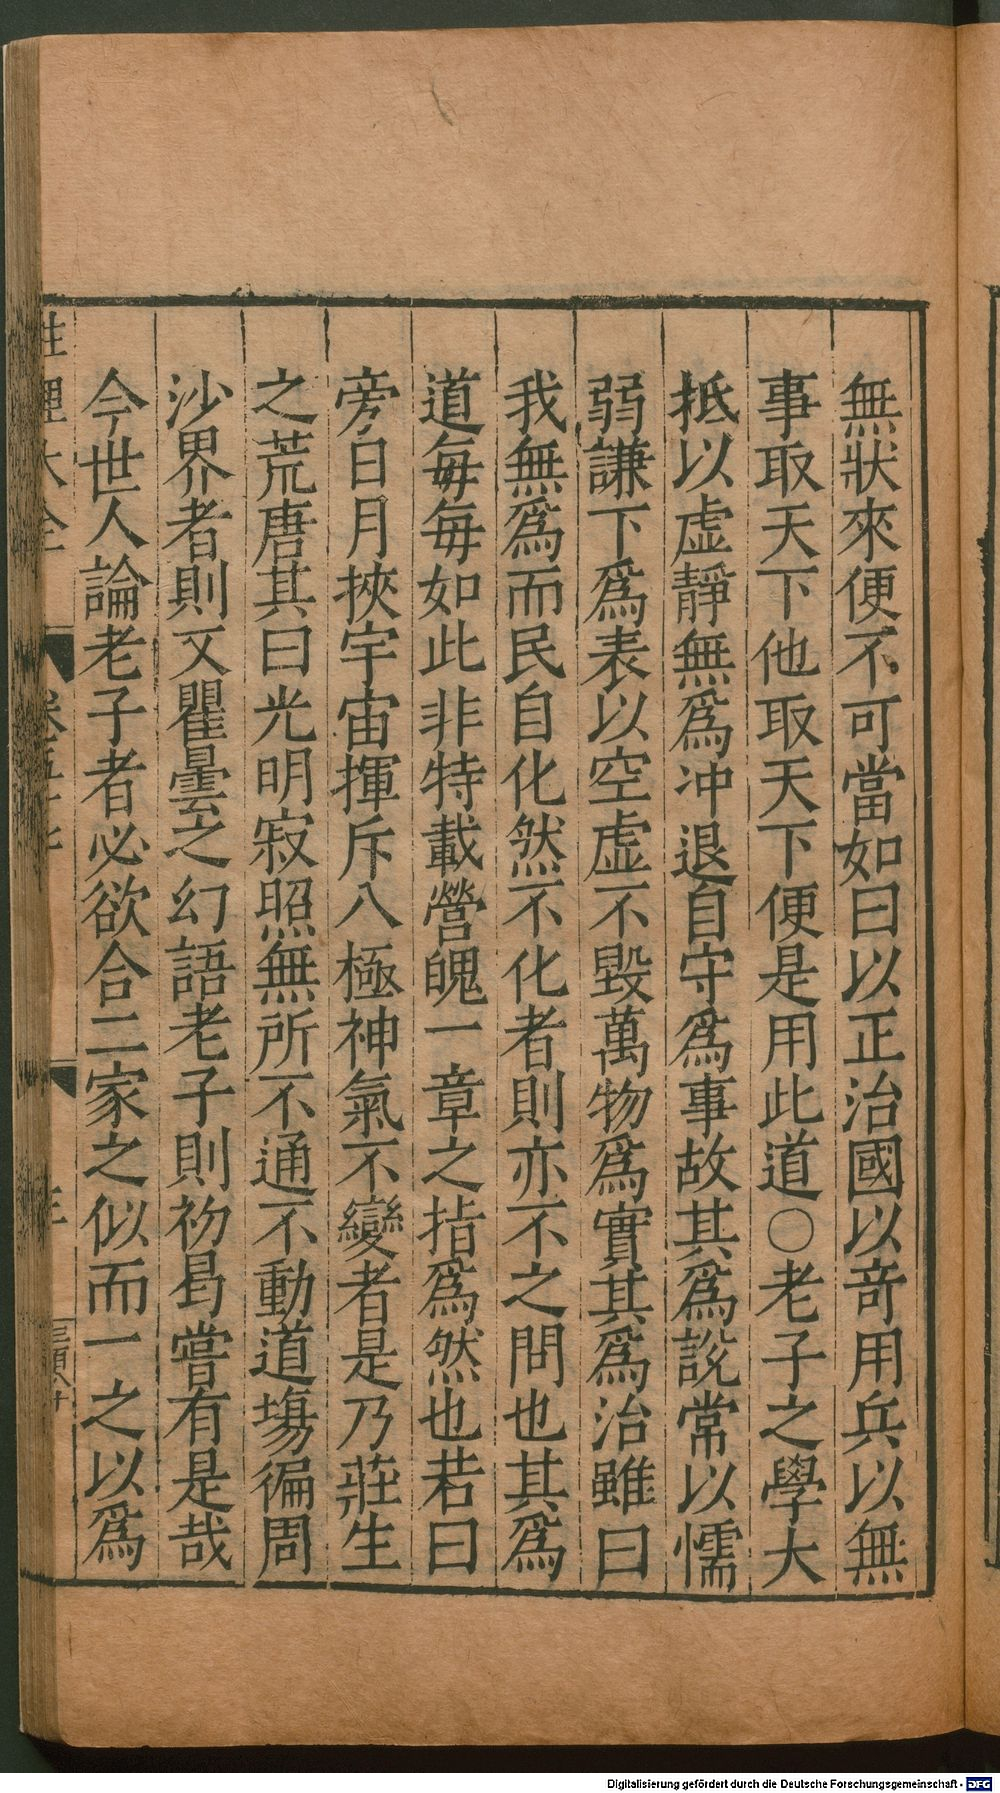 無狀來便不可當如曰以正治國以竒用兵以無
事取天下他取天下便是用此道○老子之學大
抵以虚靜無爲冲退自守爲事故其爲說常以懦
弱謙下爲表以空虚不毀萬物爲實其爲治雖曰
我無爲而民自化然不化者則亦不之問也其爲
道每每如此非特載營魄一章之指爲然也若曰
旁日月挾宇宙揮斥八極神氣不變者是乃莊生
之荒唐其曰光明寂照無所不通不動道塲徧周
沙界者則又瞿曇之幻語老子則初曷嘗有是哉
今世人論老子者必欲合二家之似而一之以爲
性理大全
卷五十七
三
Digitalisierung gefördert durch die Deutsche Forschungsgemeinschaft - DFG